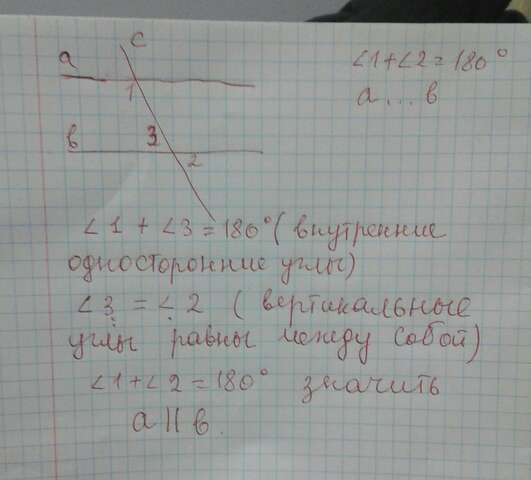 c
a
1
b
3
2
∠1+∠2=180°
a...b
∠1+∠3=180° (внутренние
односторонние углы)
∠3=∠2 (вертикальные
углы равны между собой)
∠1+∠2=180° значить
a||b.